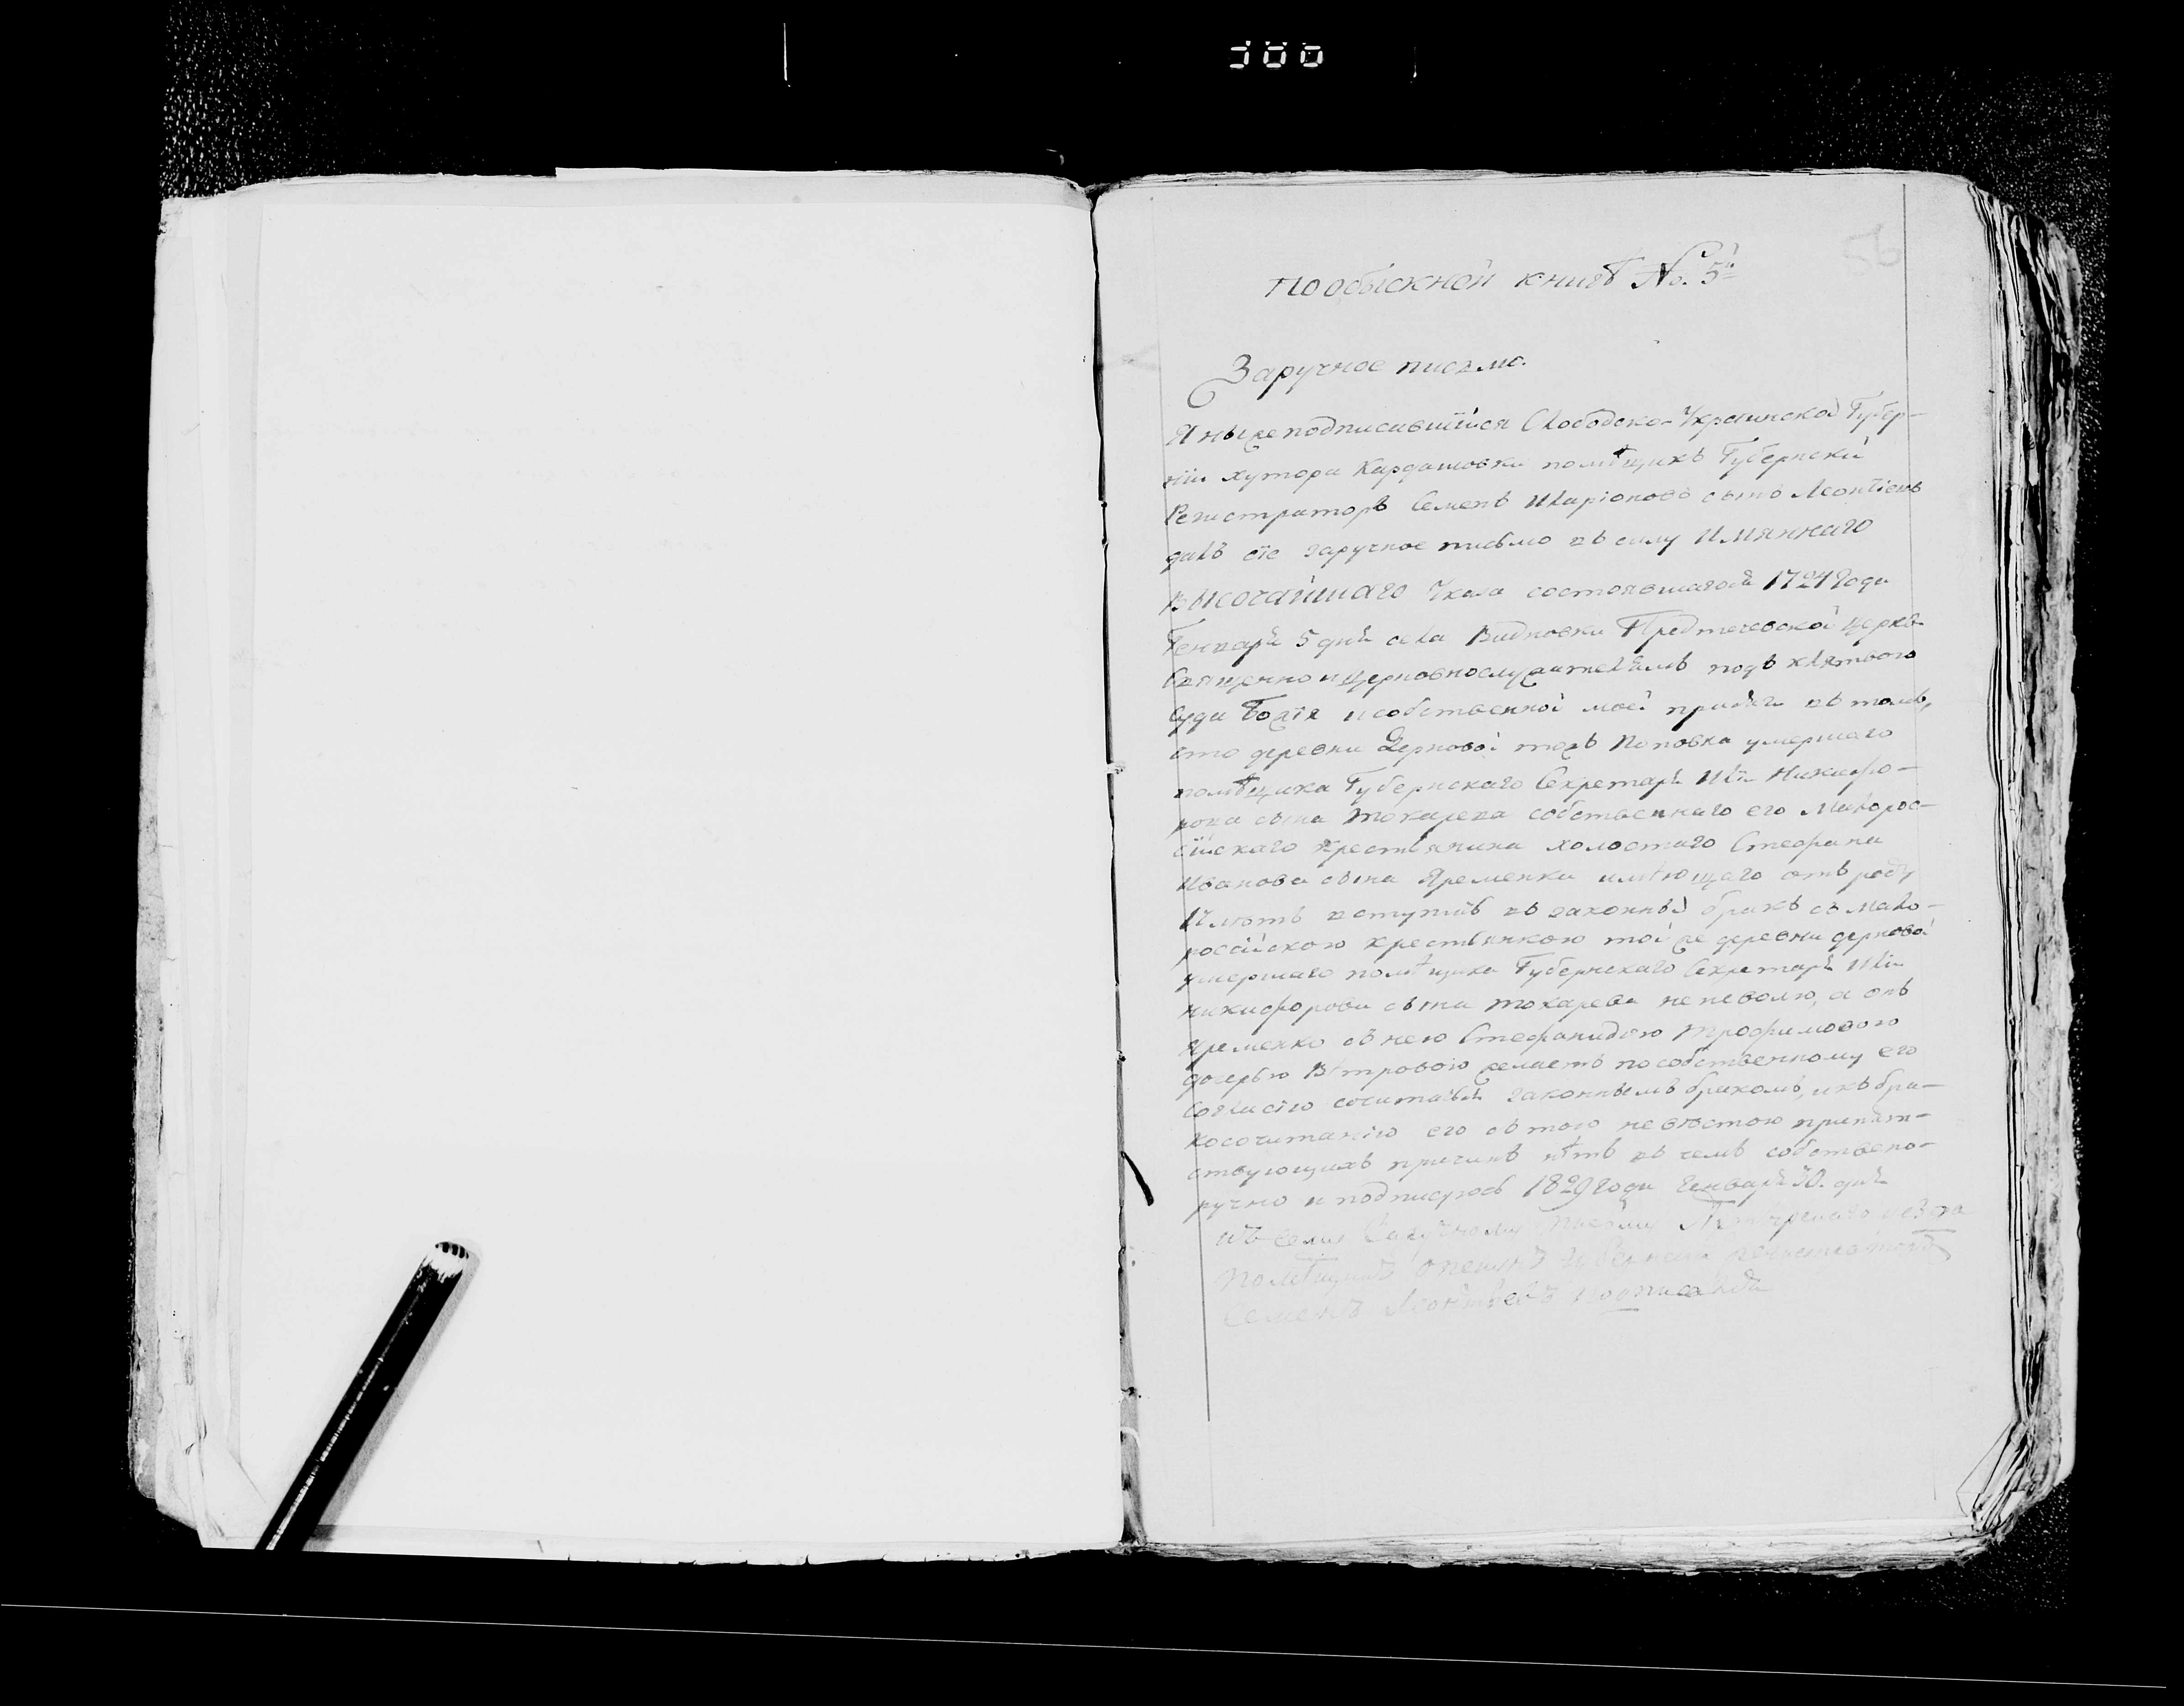 300
56
по обыскной книгѣ No. 5й
Заручное письмо.
Я нижеподписавшійся Слободско-Украинской Губер-
ніи хутора Кардашовки помѣщикъ Губернскій
Регистраторъ Семенъ Иларіоновъ сынъ Леонтіевъ
далъ сіе заручное письмо въ силу Имяннаго
Высочайшаго Указа состоявшагося 1724 Года
Генваря 5 дня села Видновки Предтечевской церкви
Священно и церковнослужителямъ подъ клятвою
Суда Божія и собственной моей присяги въ томъ,
что деревни Дерновой тожъ Поповка умершаго
помѣщика Губернскаго Секретаря Ильи Никифо-
рова сына Токарева собственнаго его Малорос-
сійскаго крестьянина холостаго Стефана
Иванова сына Яременка имѣющаго отъ роду
лѣтъ вступить въ законный бракъ съ Мало-
россійскою крестьянкою той же деревни дерновой
умершаго помѣщика Губернскаго Секретаря Ильи
Никифорова сына Токарева не неволю, а онъ
Яременко съ нею Стефанидою Трофимовою
дочерью Вѣтровою желаетъ по собственному его
согласію сочитаться законнымъ бракомъ, и къ бра-
косочитанію его съ тою невѣстою препят-
ствующихъ причинъ нѣтъ въ чемъ собствено-
ручно и подписуюсь 1829 года Генваря 30. дня
Къ сему заручному письму уезда
помѣщикъ опекунъ губернскій регистраторъ
Семенъ Леонтьевъ подписался